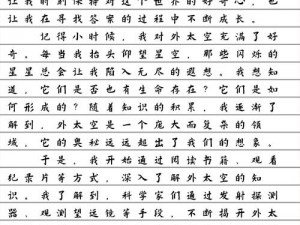 让我时刻保持对这个世界的好奇心，也
让我在寻找答案的过程中不断成长。
记得小时候，我对外太空充满了好
奇。每当我抬头仰望星空，那些闪烁的
星星总会让我陷入无尽的遐想。我想知
道，它们是否也有生命存在？它们是如
何形成的？随着知识的积累，我逐渐了
解到，外太空是一个庞大而复杂的领
域，它的奥秘远远超出了我们的想象。
于是，我开始通过阅读书籍，观看
纪录片等方式，深入了解外太空的知
识。我了解到，科学家们通过发射探测
器、观测望远镜等手段，不断揭开外太